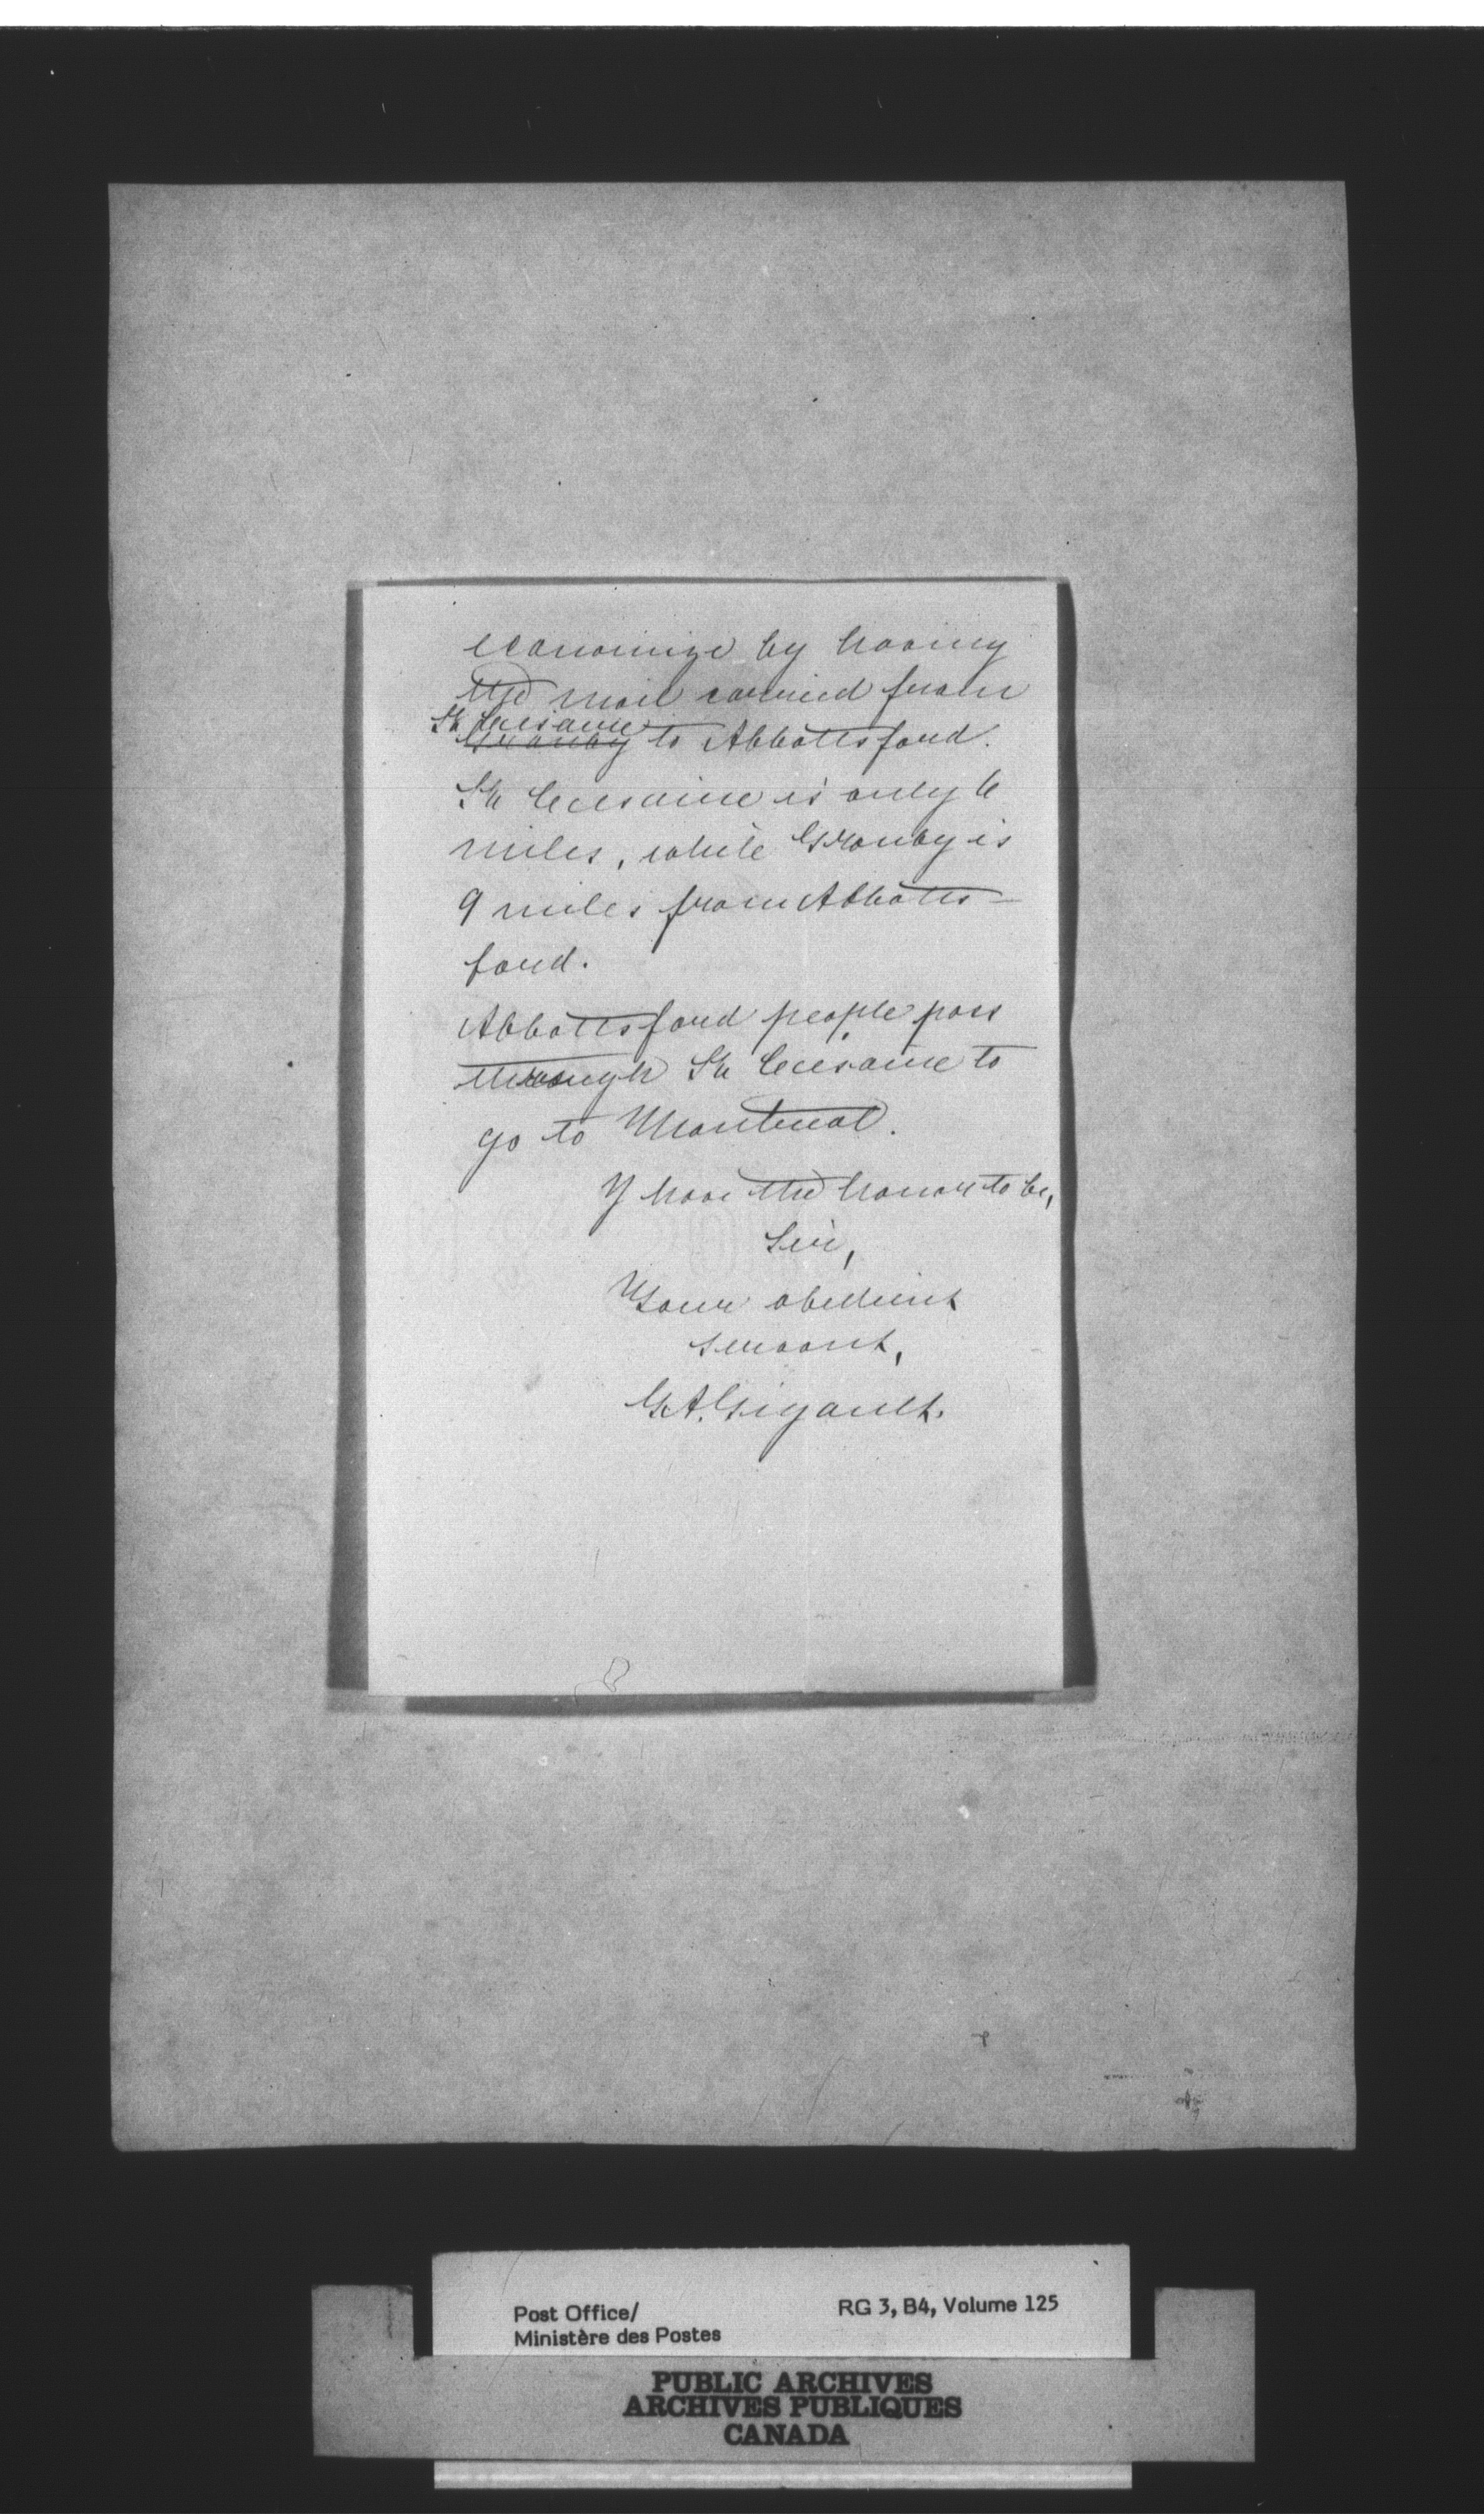 economize by having
the mail carried from
St Cesaire
Granby to Abbottsford.
St Cesaire is only 6
miles, while Granby is
9 miles from Abbotts-
ford.
Abbottsford people pass
through St Cesaire to
go to Montreal.
I have the honor to be,
Sir,
Your obedient
servant,
G.A. Gigault.
Post Office/
Ministère des Postes
RG 3, B4, Volume 125
PUBLIC ARCHIVES
ARCHIVES PUBLIQUES
CANADA